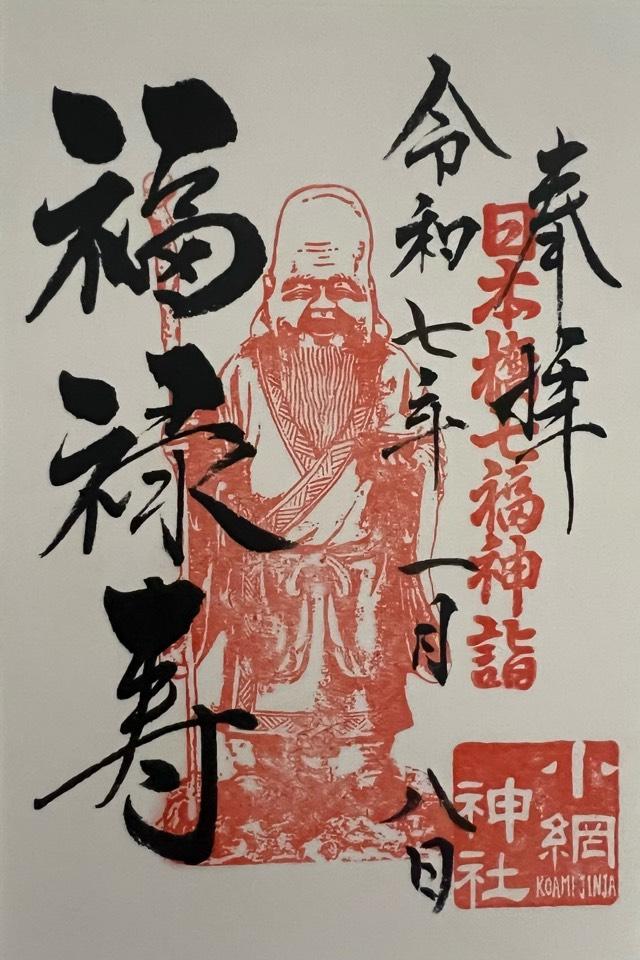 奉拝
日本橋七福神詣
令和七年一月八日
福禄寿
小網
神社
KOAMI JINJA